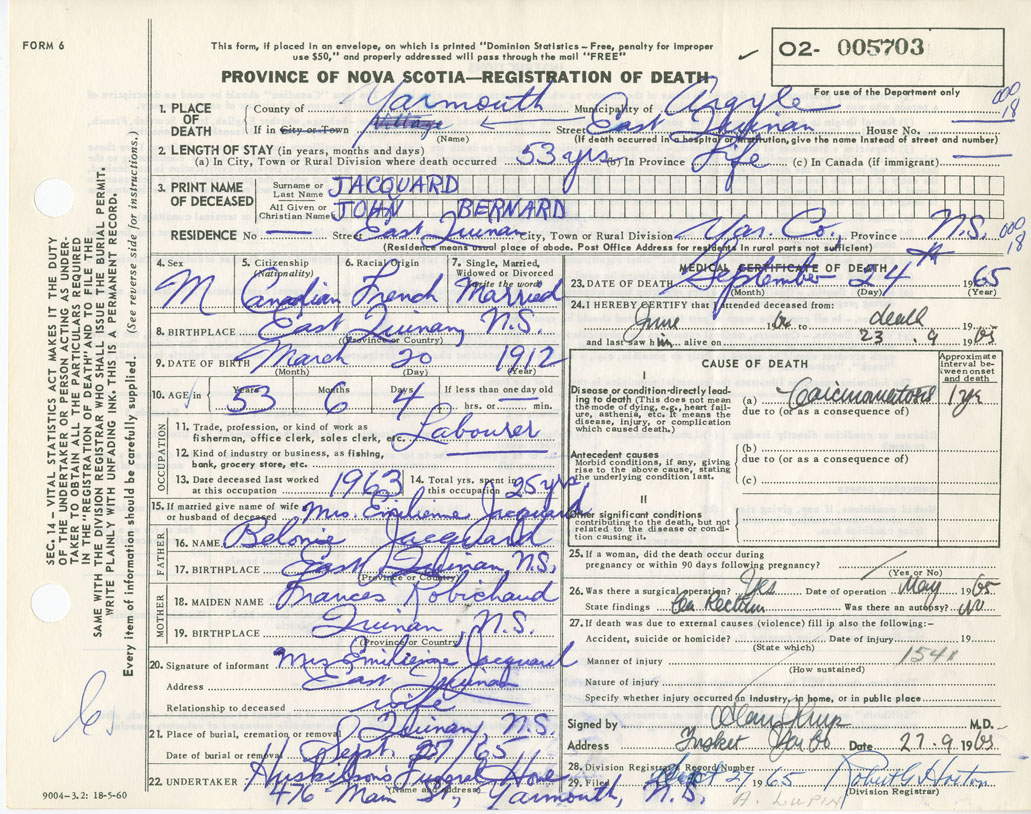 FORM 6
This form, if placed in an envelope, on which is printed "Dominion Statistics – Free, penalty for improper
use $50," and properly addressed will pass through the mail "FREE"
02- 005703
For use of the Department only
PROVINCE OF NOVA SCOTIA—REGISTRATION OF DEATH
000
18
1. PLACE OF DEATH
County of Yarmouth Municipality of Argyle
If in City or Town Village Street East Quinan House No. —
(Name) (If death occurred in a hospital or institution, give the name instead of street and number)
2. LENGTH OF STAY (in years, months and days)
(a) In City, Town or Rural Division where death occurred 53 yrs. (b) In Province Life (c) In Canada (if immigrant) —
3. PRINT NAME OF DECEASED
Surname or Last Name JACQUARD
All Given or Christian Names JOHN BERNARD
RESIDENCE No — Street East Quinan City, Town or Rural Division Yar. Co., Province N.S.
000
18
(Residence means usual place of abode. Post Office Address for residents in rural parts not sufficient)
4. Sex M
5. Citizenship (Nationality) Canadian
6. Racial Origin French
7. Single, Married, Widowed or Divorced (Write the word) Married
8. BIRTHPLACE East Quinan, N.S.
(Province or Country)
9. DATE OF BIRTH March 20 1912
(Month) (Day) (Year)
10. AGE in Years 53 Months 6 Days 4 If less than one day old hrs. or min.
OCCUPATION
11. Trade, profession, or kind of work as fisherman, office clerk, sales clerk, etc. Labourer
12. Kind of industry or business, as fishing, bank, grocery store, etc.
13. Date deceased last worked at this occupation 1963
14. Total yrs. spent in this occupation 25 yrs.
15. If married give name of wife or husband of deceased Mrs. Emilienne Jacquard
FATHER
16. NAME Belonie Jacquard
17. BIRTHPLACE East Quinan, N.S.
(Province or Country)
MOTHER
18. MAIDEN NAME Frances Robichaud
19. BIRTHPLACE Quinan, N.S.
(Province or Country)
20. Signature of informant Mrs Emilienne Jacquard
Address East Quinan
Relationship to deceased wife
21. Place of burial, cremation or removal Quinan, N.S.
Date of burial or removal Sept. 27/65
22. UNDERTAKER Huskilson's Funeral Home
(Name and address)
476 Main St., Yarmouth, N.S.
9004–3.2: 18-5-60
MEDICAL CERTIFICATE OF DEATH
23. DATE OF DEATH September 24th 1965
(Month) (Day) (Year)
24. I HEREBY CERTIFY that I attended deceased from:
June 19 to death 19
and last saw him alive on 23 . 9 1965
CAUSE OF DEATH
Approximate interval between onset and death
I
Disease or condition directly leading to death (This does not mean the mode of dying, e.g., heart failure, asthenia, etc. It means the disease, injury, or complication which caused death.
(a) Carcinomatosis 1 yr
due to (or as a consequence of)
Antecedent causes
Morbid conditions, if any, giving rise to the above cause, stating the underlying condition last.
(b)
due to (or as a consequence of)
(c)
II
Other significant conditions
contributing to the death, but not related to the disease or condition causing it.
25. If a woman, did the death occur during pregnancy or within 90 days following pregnancy?
(Yes or No)
26. Was there a surgical operation? Yes Date of operation May 1965
State findings Ca Rectum Was there an autopsy? No
27. If death was due to external causes (violence) fill in also the following:–
Accident, suicide or homicide? Date of injury 19
(State which)
Manner of injury 154x
(How sustained)
Nature of injury
Specify whether injury occurred in industry, in home, or in public place
Signed by M.D.
Address Tusket Date 27.9 1965
28. Division Registrar's Record Number
29. Filed Sept 27 1965 Robert G. Horton
(Division Registrar)
A. LUPIN
SEC. 14 – VITAL STATISTICS ACT MAKES IT THE DUTY
OF THE UNDERTAKER OR PERSON ACTING AS UNDER-
TAKER TO OBTAIN ALL THE PARTICULARS REQUIRED
IN THE "REGISTRATION OF DEATH" AND TO FILE THE
SAME WITH THE DIVISION REGISTRAR WHO SHALL ISSUE THE BURIAL PERMIT.
WRITE PLAINLY WITH UNFADING INK. THIS IS A PERMANENT RECORD.
Every item of information should be carefully supplied. (See reverse side for instructions.)